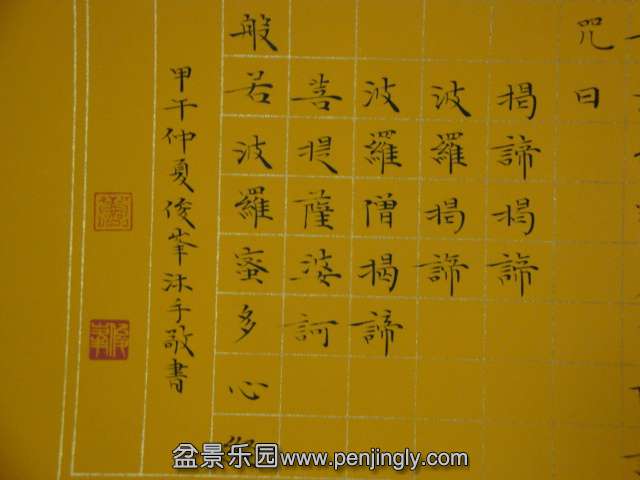 咒曰
揭諦揭諦
波羅揭諦
波羅僧揭諦
菩提薩婆訶
般若波羅蜜多心
甲午仲夏俊峯沐手敬書
盆景乐园www.penjingly.com